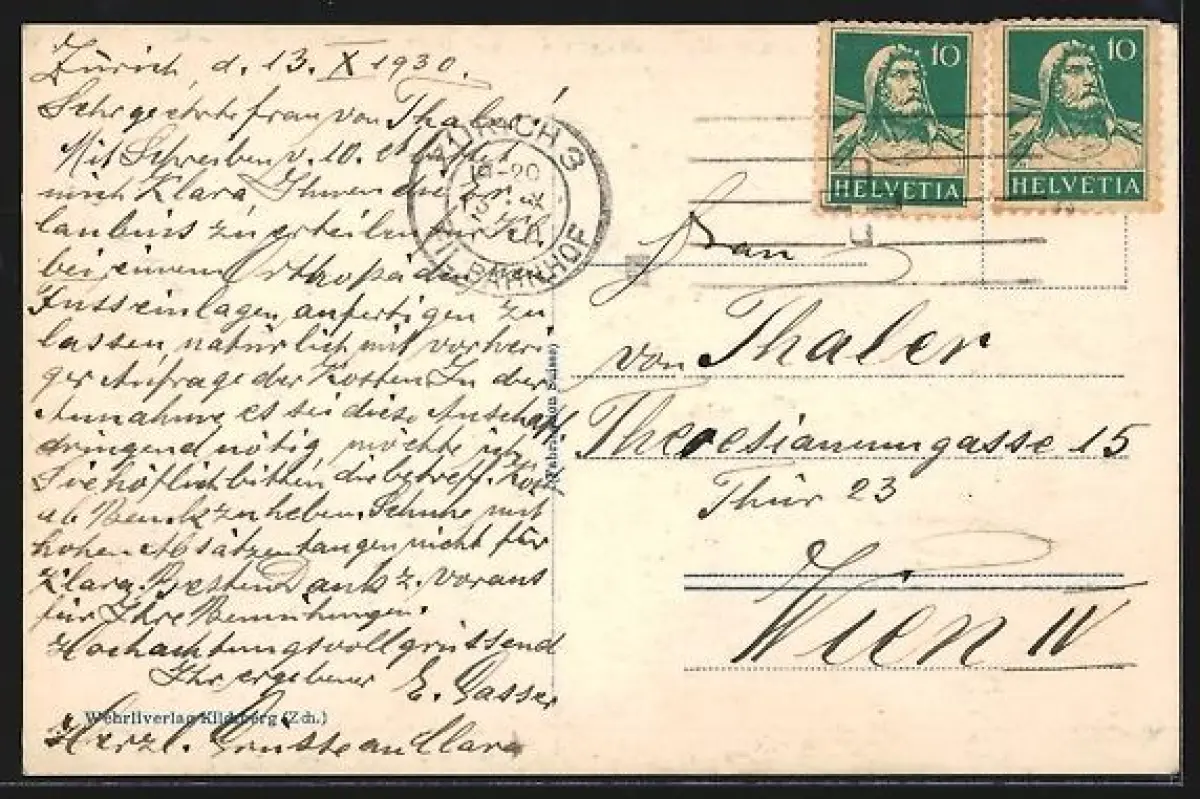 Zürich, d. 13. X 1930.
Sehr geehrte frau von Thaler!
Mit Schreiben v. 10. ct
mich Klara, Ihnen die Er-
laubnis zu erteilen für sie
bei einem Orthopäden
Fusseinlagen anfertigen zu
lassen, natürlich mit vorheri-
ger Anfrage der Kosten. In der
Annahme es sei diese Anschaff.
dringend nötig, möchte ich
Sie höflich bitten die betreff.
ab Bank zu heben. Schuhe mit
hohen Absätzen taugen nicht für
Klara. Besten Dank z. voraus
für Ihre Bemühungen.
Hochachtungsvoll grüssend
Ihr ergebener E. Gasser
Wehrliverlag Kilchberg (Zch.)
Herzl. Grüsse an Clara
ZÜRICH 3
BAHNHOF
10
HELVETIA
10
HELVETIA
Frau
von Thaler
Theresianumgasse 15
Thür 23
Wien IV